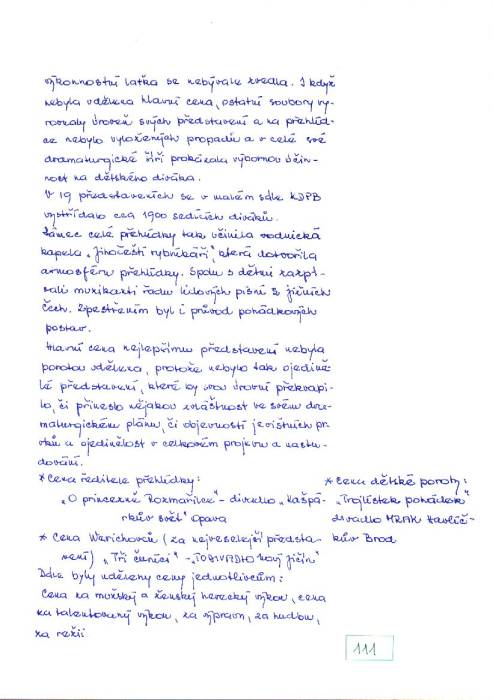 výkonnostní laťka se nebývale zvedla. I když
nebyla udělena hlavní cena, ostatní soubory vy-
rovnaly úroveň svých představení a na přehlíd-
ce nebylo vyložených propadů a v celé své
dramaturgické šíři prokázala výbornou účin-
nost na dětského diváka.
V 19 představeních se v malém sále KDPB
vystřídalo cca 1900 sedících diváků.
Rámec celé přehlídky tak učinila vodnická
kapela "Jihočeští rybníkáři", která dotvořila
atmosféru přehlídky. Spolu s dětmi zazpí-
vali muzikanti řadu lidových písní z jižních
Čech. Zpestřením byl i průvod pohádkových
postav.
Hlavní cena nejlepšímu představení nebyla
porotou udělena, protože nebylo tak ojedině-
lé představení, které by svou úrovní překvapi-
lo, či přineslo nějakou zvláštnost ve svém dra-
maturgickém plánu, či objevností jevištních pr-
vků a ojedinělost v celkovém projevu a nastu-
dování.
* Cena ředitele přehlídky:
"O princezně Rozmařilce" - divadlo "Kašpá-
rkův svět" Opava
* Cena dětské poroty:
"Trojlístek pohádek"
divadlo MRAK Havlíč-
kův Brod
* Cena Werichovců (za nejveselejší předsta-
vení) "Tři čuníci" - "TODIVADLO Nový Jičín"
Dále byly uděleny ceny jednotlivcům:
Cena na mužský a ženský herecký výkon, cena
za talentovaný výkon, za výpravu, za hudbu,
za režii
111